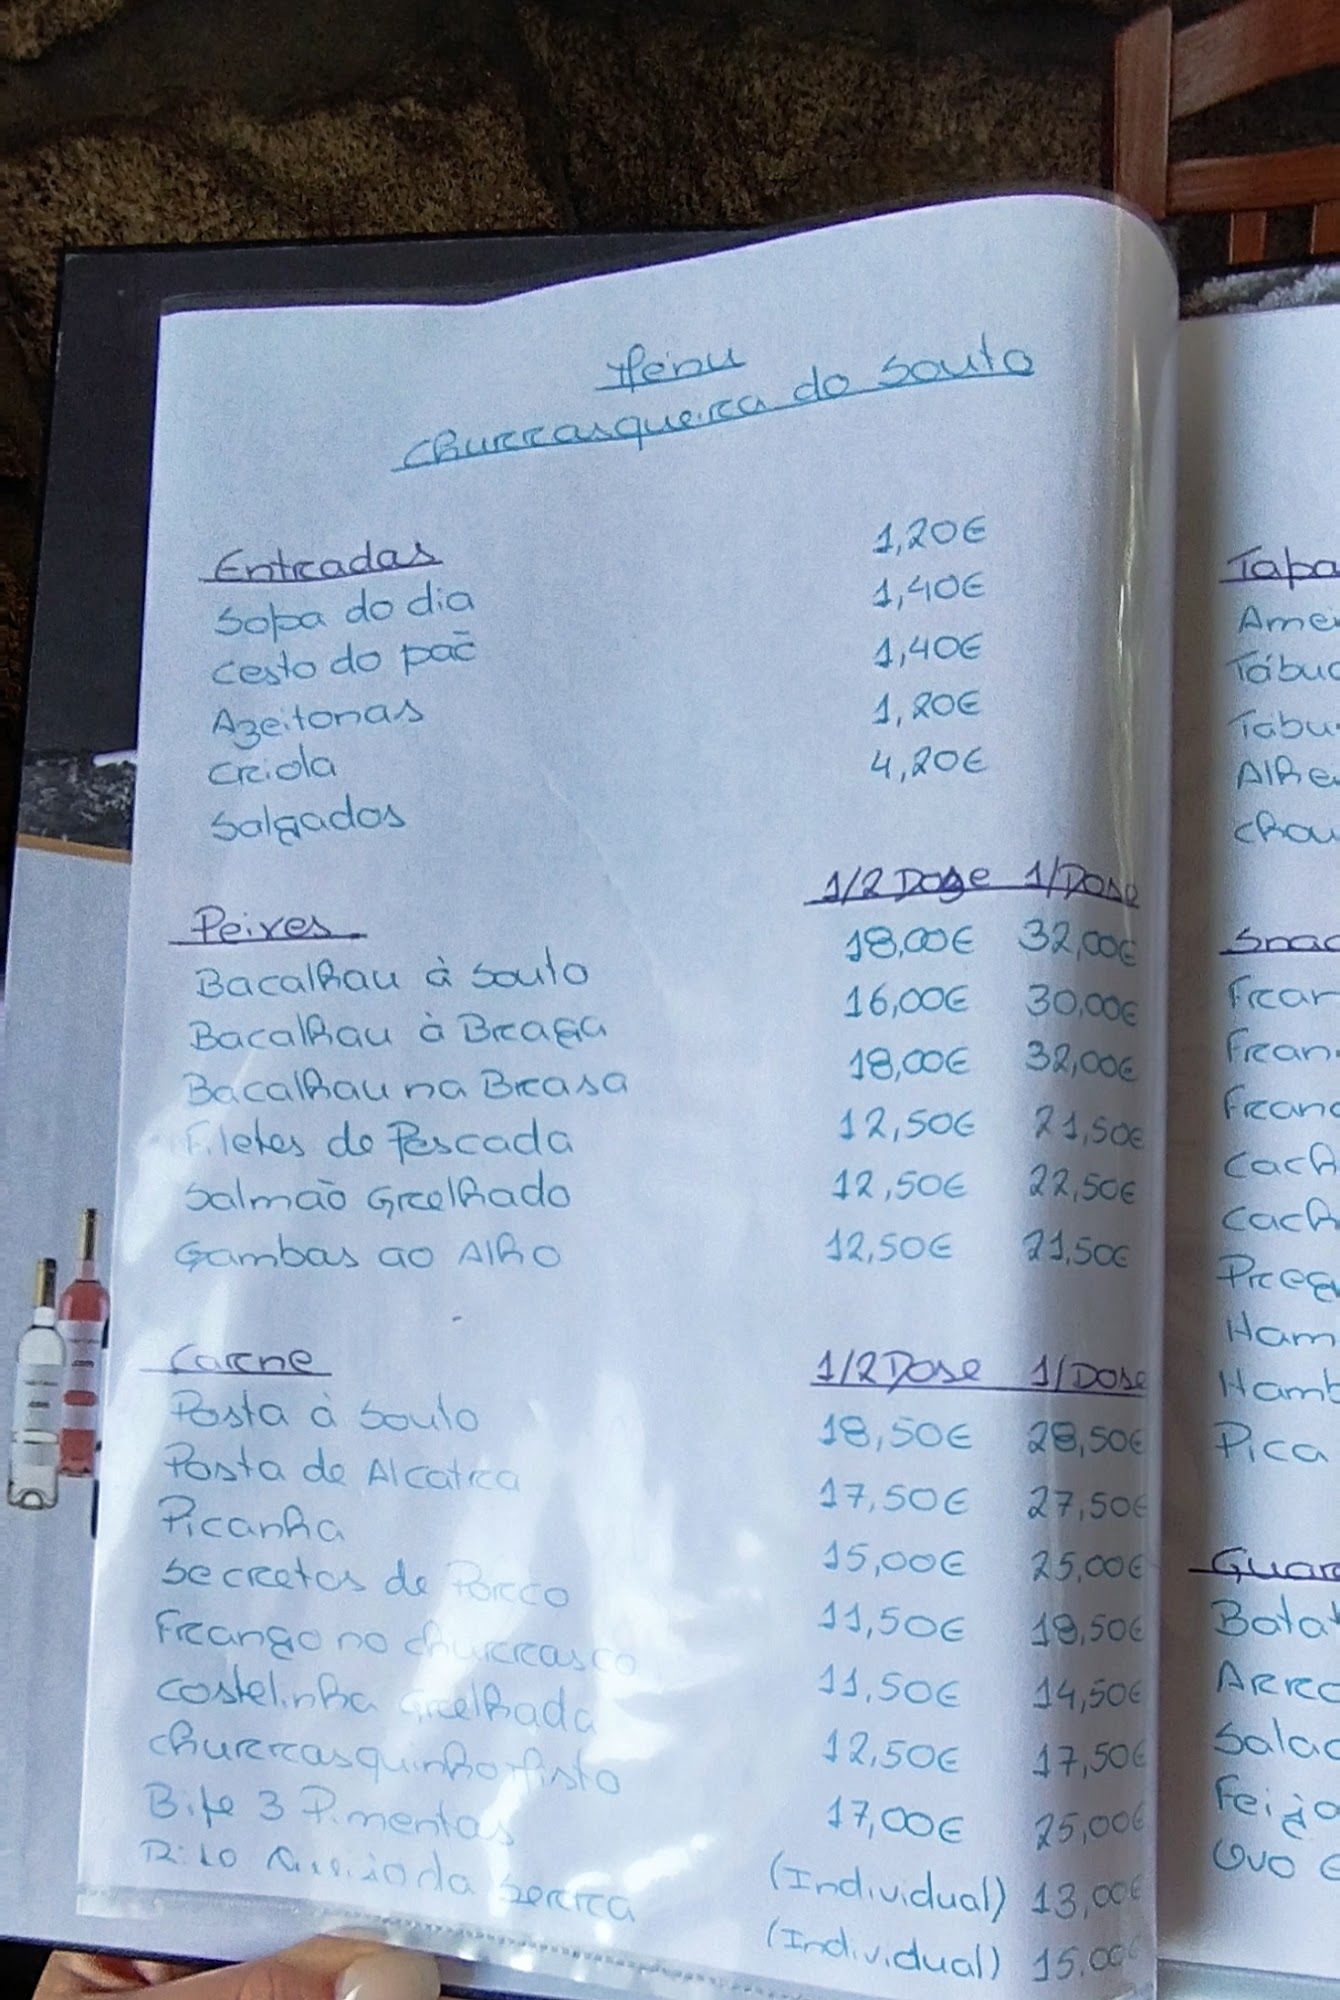 Menu
Churrasqueira do Souto
Entradas
Sopa do dia 1,20€
Cesto do pão 1,40€
Azeitonas 1,40€
Criola 1,20€
Salgados 4,20€
Peixes 1/2 Dose 1/Dose
Bacalhau à Souto 18,00€ 32,00€
Bacalhau à Braga 16,00€ 30,00€
Bacalhau na Brasa 18,00€ 32,00€
Filetes de Pescada 12,50€ 21,50€
Salmão Grelhado 12,50€ 22,50€
Gambas ao Alho 12,50€ 21,50€
Carne 1/2 Dose 1/Dose
Posta à Souto 18,50€ 28,50€
Posta de Alcatra 17,50€ 27,50€
Picanha 15,00€ 25,00€
Secretos de Porco 11,50€ 18,50€
Frango no Churrasco 11,50€ 14,50€
Costelinha Grelhada 12,50€ 17,50€
Churrasquinho Misto 17,00€ 25,00€
Bife 3 Pimentas (Individual) 13,00€
da Serra (Individual) 15,00€
Tapa
Ame
Tábu
Tabu
Alhe
Chou
Snac
Fran
Fran
Franc
Cach
Cach
Preg
Ham
Hamb
Pica
Guar
Batat
Arro
Salad
Feijo
Ovo